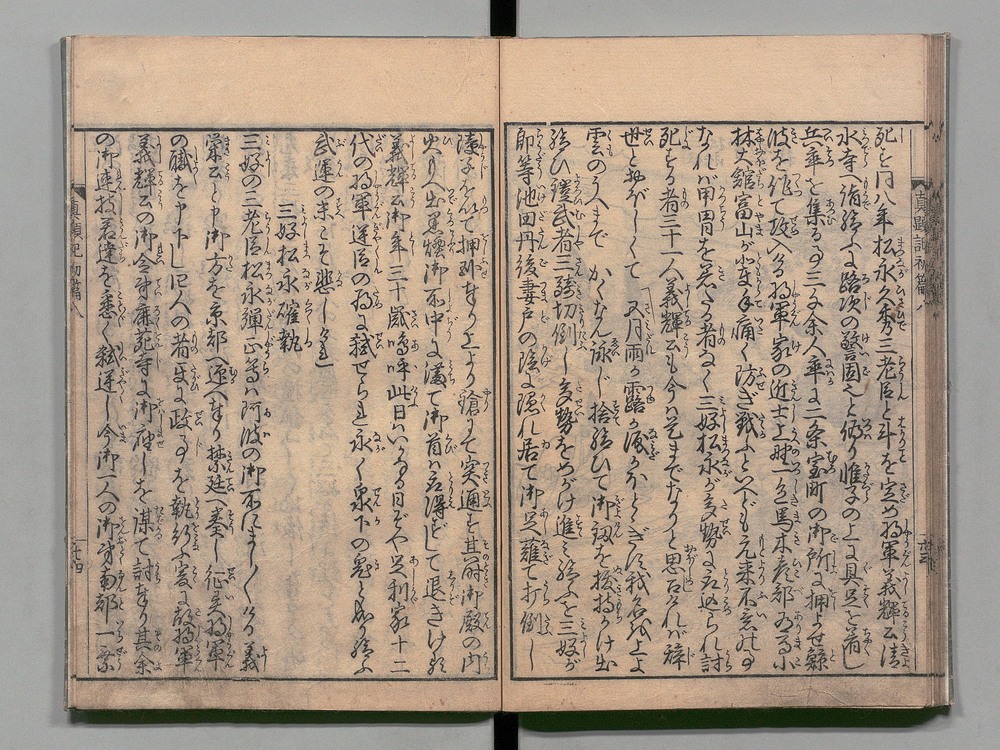 死を同八年松永久秀三老臣と斗を定め将軍義輝公清
水寺へ詣給ふ路次の警固と偽り惟子の上に具足を着し
兵卒を集る事三百余人率て二条室町の御所に押よせ
彼を作て攻入る将軍家の近士上
林大館富山が輩手痛く防ぎ戦ふといへども元来不意の事
なれバ甲冑を着たる者なく三好松永が多勢に取込られ討
死する者三十一人義輝公も今ハ是までなりと思召れバ辞
世とおぼしくて　五月雨か露か涙かほとゝぎす我名を上よ
雲のうへまで　かくなん詠じ捨給ひて御釼を抜持かけ出
給ひ鎧武者三騎切倒し多勢をめがけ進ミ給ふを三好が
郎等池田丹後妻戸の陰に隠れ居て御足を薙て打倒し
障子を以て押へ奉り上より鎗にて突通す其時御殿の内
より火出黒煙御所中に満て御首ハ不得して退きける
義輝公御年三十歳嗚呼此日ハいかなる日ぞや足利家十二
代の将軍逆臣の為に弑せられ永く泉下の鬼と成給ふ
武運の末こそ悲しけれ
三好松永確執
三好の三老臣松永弾正等ハ阿波の御所におハしける義
栄公と申御方を京都へ迎へ奉り禁廷へ奏し征夷将軍
の職を申下し四人の者共政事を執行ふ爰に故将軍
義輝公の御舎弟鹿苑寺に御座しを謀て討奉り其余
の御連枝君達を悉く弑逆し今御一人の御弟南都一乗
真顕記初篇八
真顕記初篇八
廿四